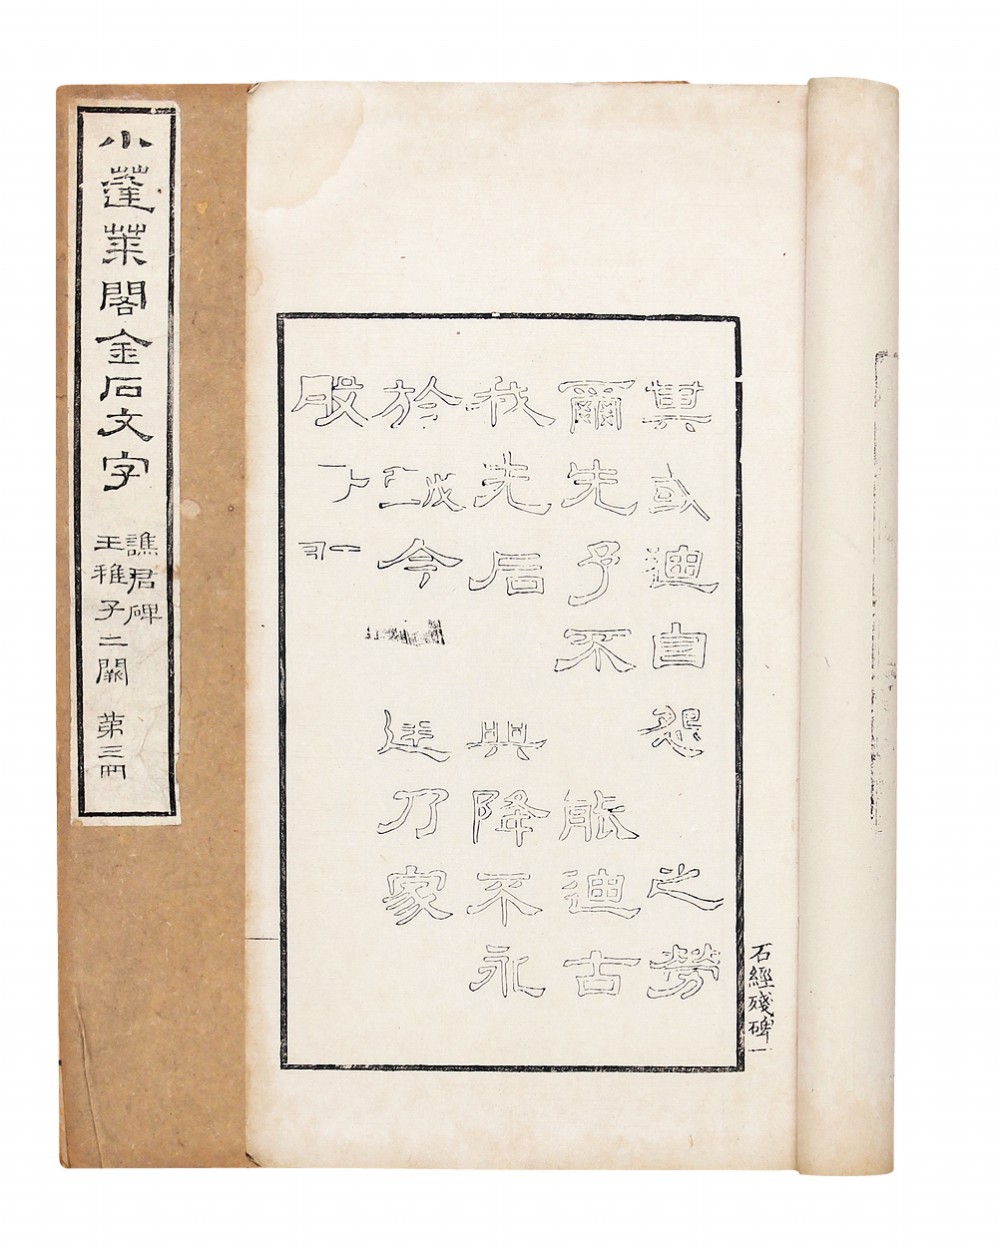 小蓬萊閣金石文字
譙君碑
王稚子二闕
第三冊
其或迪自怨 之勞
爾先予不 能迪古
我先后 興降不永
於戲今 建乃家
般
石經殘碑 一